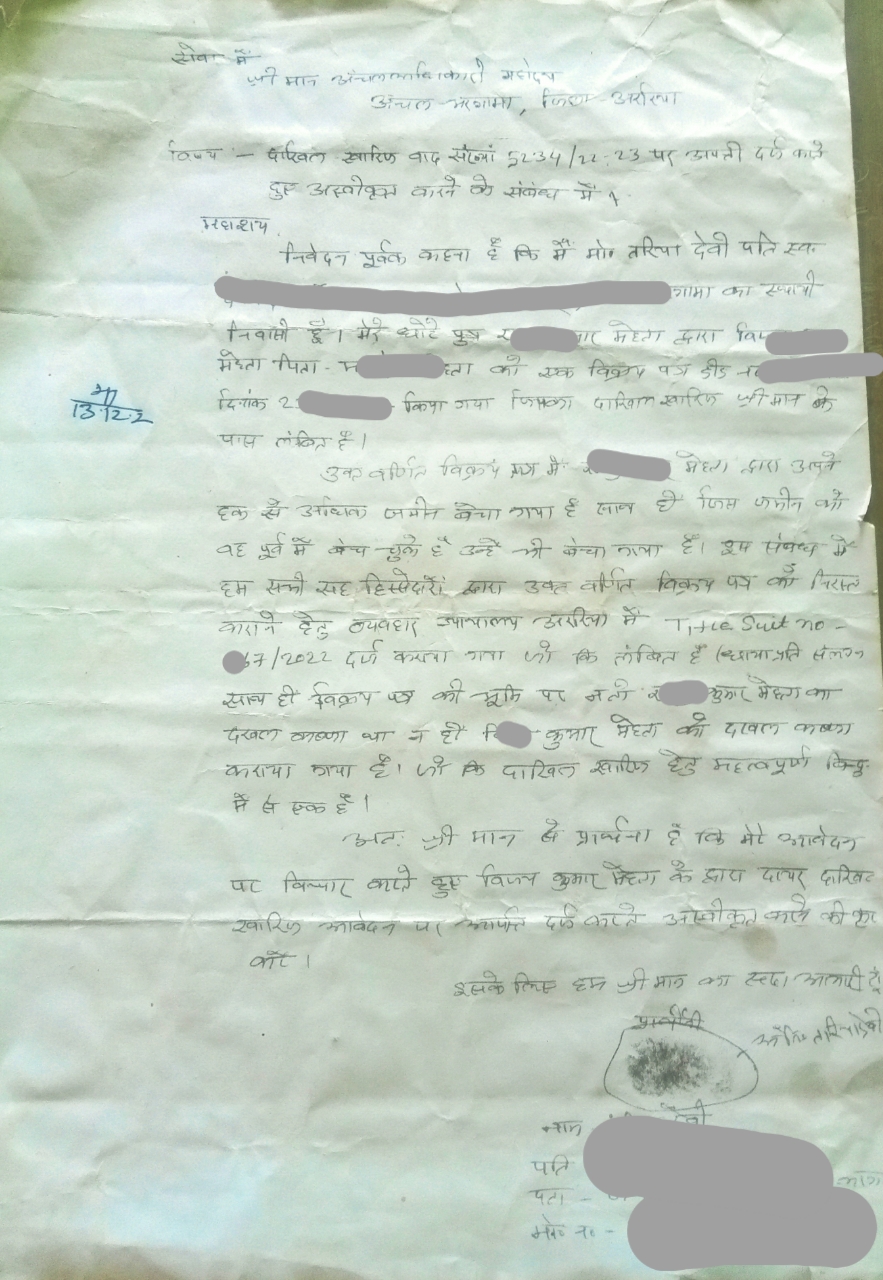 सेवा में
श्री मान अंचलाधिकारी महोदय
अंचल - भरगामा, जिला - अररिया
विषय :- दाखिल खारिज वाद संख्यां 5234/22-23 पर आपती दर्ज करते
हुए अस्वीकृत करने के संबंध में ।
महाशय,
निवेदन पूर्वक कहना है कि मैं मो० तरिया देवी पति स्व.
गामा का स्थायी
निवासी हूँ। मेरे छोटे पुत्र मेहता द्वारा
मेहता पिता - को एक विक्रय पत्र डीड
दिनांक 2 किया गया जिसका दाखिल खारिज श्री मान के
पास लंबित है।
उक्त वर्णित विक्रय पत्र में मेहता द्वारा अपने
हक से अधिक जमीन बेचा गया है साथ ही जिस जमीन को
वह पूर्व में बेच चुके है उन्हें भी बेचा गया है। इस संबंध में
हम सभी सह हिस्सेदारों द्वारा उक्त वर्णित विक्रय पत्र को निरस्त
कराने हेतु व्यवहार न्यायालय अररिया में Title Suit no -
67/2022 दर्ज कराया गया जो कि लंबित है (छायाप्रति संलग्न
साथ ही विक्रय पत्र की भूमि पर न तो कुमार मेहता का
दखल कब्जा था न ही कुमार मेहता को दखल कब्जा
कराया गया है। जो कि दाखिल खारिज हेतु महत्वपूर्ण बिन्दु
में से एक है।
अतः श्री मान से प्रार्थना है कि मेरे आवेदन
पर विचार करते हुए विजय कुमार मेहता के द्वारा दायर दाखिल
खारिज आवेदन पर आपति दर्ज करते अस्वीकृत करने की कृपा
करें।
इसके लिए हम श्री मान का सदा आभारी हूँ।
प्रार्थीनी
तरिया देवी
नाम देवी
पति
पता -
मो० न० -
13.12.2